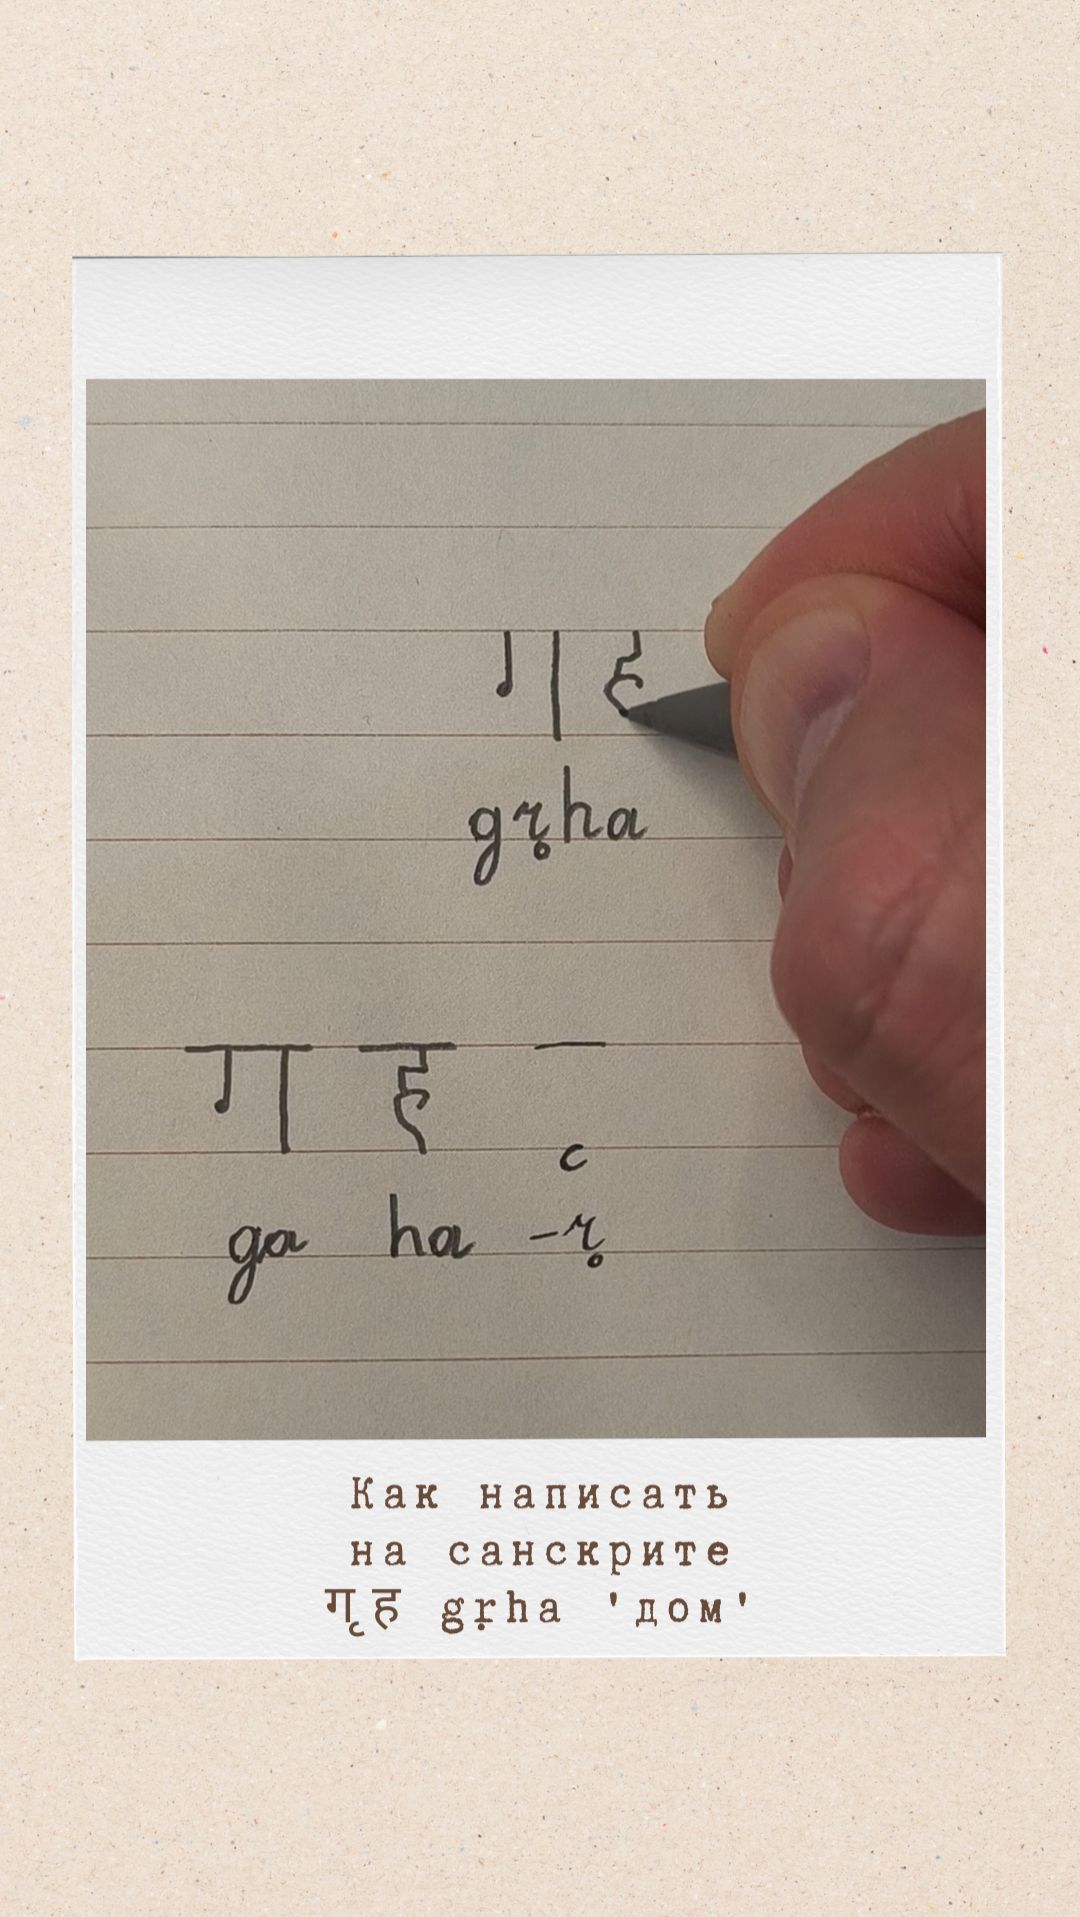 ग ह
gr̥ha
ग ह ृ
ga ha -r̥
Как написать
на санскрите
गृह gṛha 'дом'